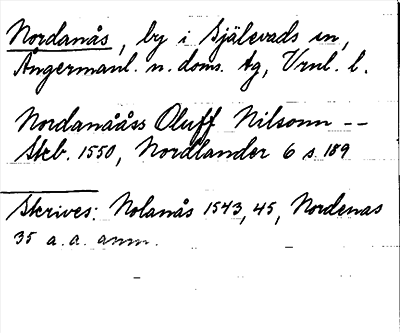 Nordanås, by i Själevads sn,
Ångermanl. n. doms. tg, Vrnl. l.
Nordanååss Oluff Nilsonn --
Skb. 1550, Nordlander 6 s 189
Skrives: Nolanås 1543, 45, Nordenas
35 a.a. anm.